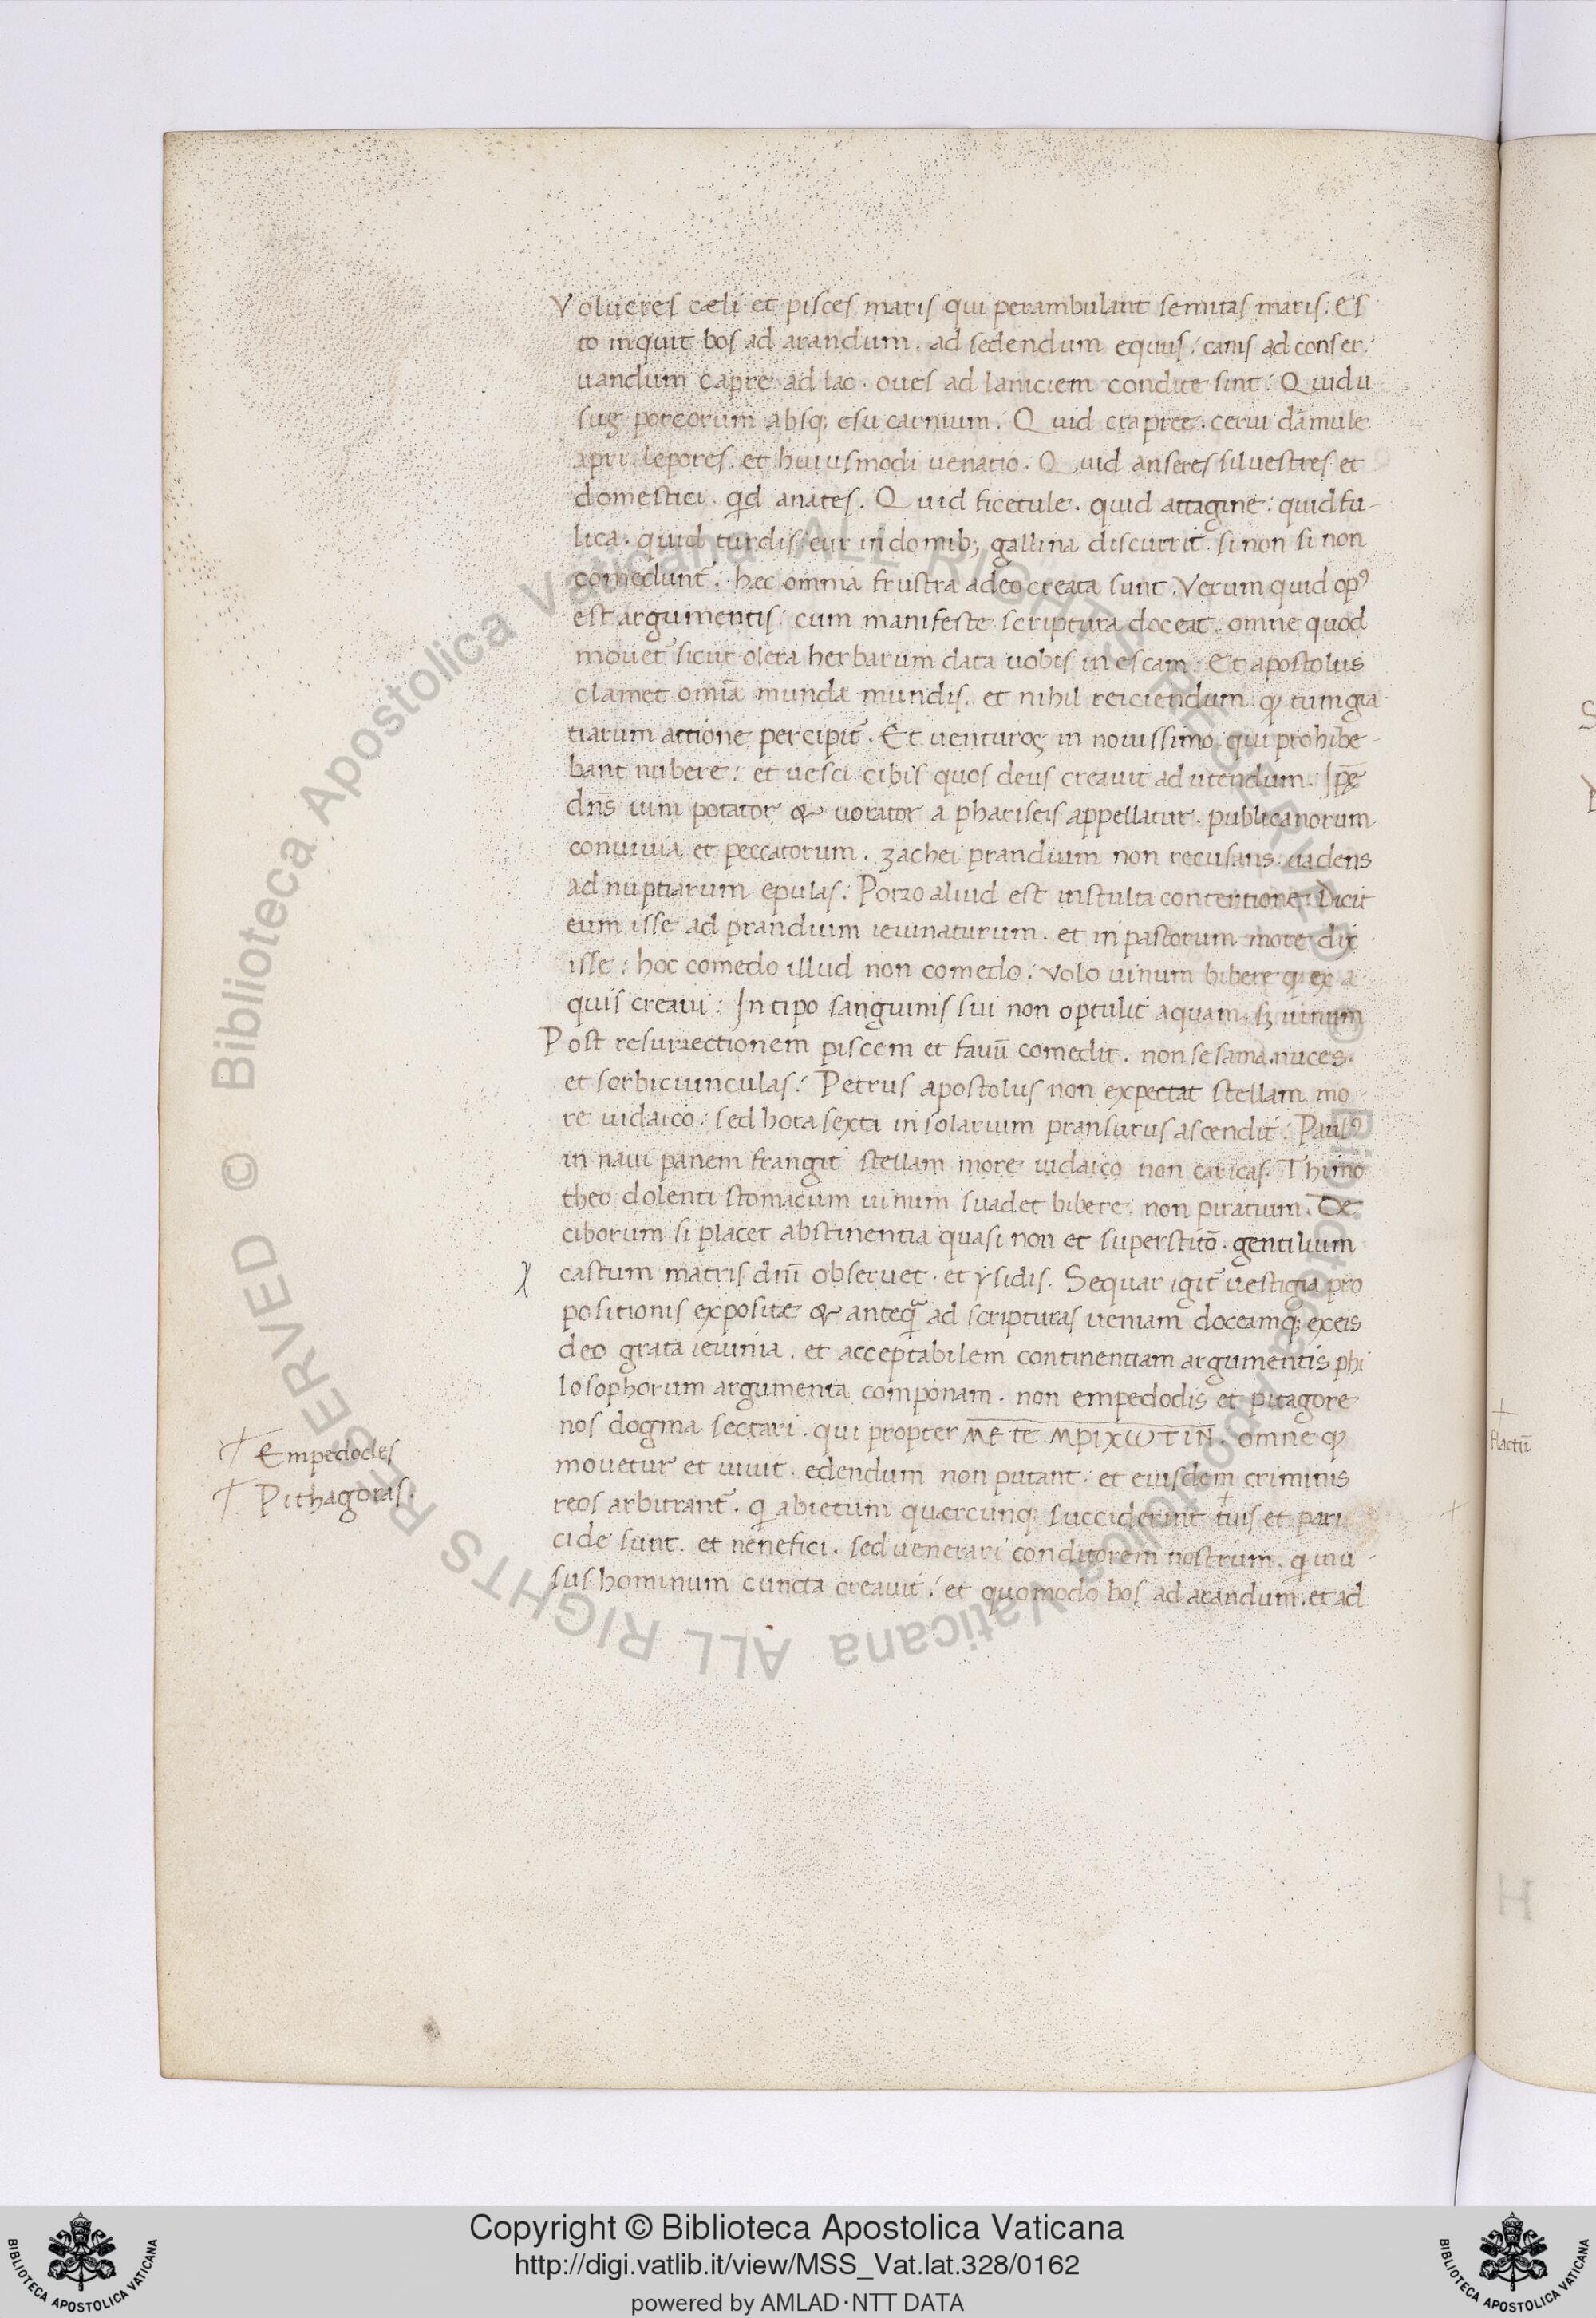 Volueres cæli et pisces maris qui perambulant semitas maris: Es
to inquit bos ad arandum. ad sedendum equus: canis ad conser
uandum capre ad lac. oues ad laniciem condite sint: Quid u
sus porcorum absq; esu carnium. Quid crapree. cerui dāmule
apri. lepores. et huiusmodi uenatio. Quid anseres siluestres et
domestici. qd anates. Quid ficetule. quid attagine: quid fu-
lica. quid turdis cur in domib; gallina discurrit. si non si non
comedunt̃. hæc omnia frustra adeo creata sunt. Verum quid op⁹
est argumentis: cum manifeste scriptura doceat. omne quod
mouet̃ sicut olera herbarum data uobis in escam. Et apostolus
clamet omīa mundæ mundis. et nihil reiciendum. qđ cum gra
tiarum actione percipit̃. Et venturos in nouissimo qui prohibe-
bant nubere: et uesci cibis quos deus creauit ad utendum. Ip̄e
dn̄s uini potator & uorator a phariseis appellatur. publicanorum
conuiuia et peccatorum. zachei prandium non recusans. uadens
ad nuptiarum epulas: Porro aliud est in stulta contentione Dicit
eum isse ad prandium ieiunaturum. et in pastorum more dix
isse: hoc comedo illud non comedo: volo uinum bibere q ex a
quis creaui: In tipo sanguinis sui non optulit aquam. sz uinum
Post resurrectionem piscem et fauū comedit. non sesama. nuces.
et sorbiciunculas: Petrus apostolus non expectat stellam mo
re iudaico: sed hora sexta in solarium pransurus ascendit: Paul⁹
in naui panem frangit stellam more iudaico non caricas. Thimo
theo dolenti stomacum uinum suadet bibere: non piratium. De
ciborum si placet abstinentia quasi non et superstitō. gentilium
castum matris dm̄ obseruet. et ysidis. Sequar igit̃ uestigia pro
positionis expositæ & anteq̃ ad scripturas ueniam doceamq; ex eis
deo grata ieiunia. et acceptabilem continentiam argumentis phi
losophorum argumenta componam. non empedodis et pitagore
nos dogma sectari. qui propter ME TE MPIXωTIN. omne qđ
mouetur et uiuit. edendum non putant. et eiusdem criminis
reos arbitrant̃. q abietum quercunq; succiderint tuis et pari
cide sunt. et nenefici. sed uenerari conditorem nostrum. q in u-
sus hominum cuncta creauit: et quomodo bos ad arandum. et ad
Empedodes
Pithagoras.
Copyright © Biblioteca Apostolica Vaticana
http://digi.vatlib.it/view/MSS_Vat.lat.328/0162
powered by AMLAD·NTT DATA
BIBLIOTECA APOSTOLICA VATICANA
BIBLIOTECA APOSTOLICA VATICANA
© Biblioteca Apostolica Vaticana ALL RIGHTS RESERVED
© Biblioteca Apostolica Vaticana ALL RIGHTS RESERVED